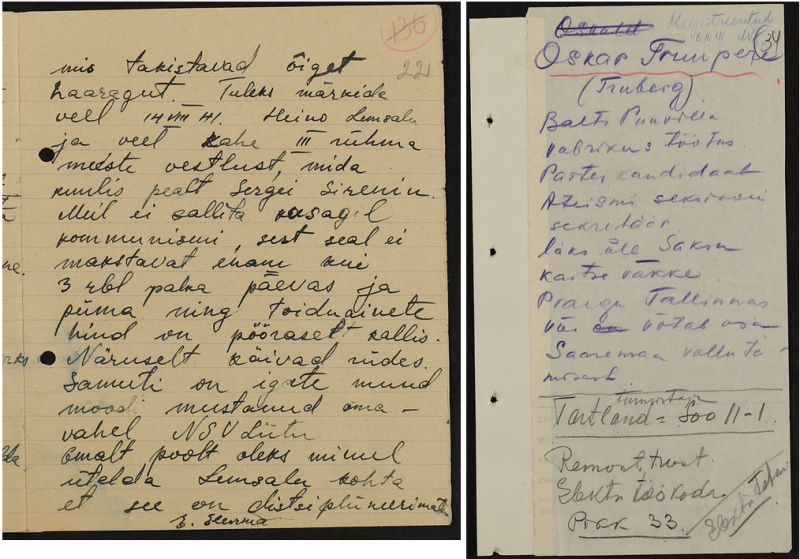 136
221
mis takistavad õiget
haaragut. Tuleks märkida
veel 14 VIII 41. Heino Lemsalu
ja veel kahe III rühma
meeste vestlust, mida
kuulis pealt Sergei Sirenin.
Meil ei sallita kusagil
kommunismi, sest seal ei
makstavat enam kui
3 rbl palka päevas ja
piima ning toiduainete
hind on pööraselt kallis.
Näruselt käivad riides.
Samuti on igate muud
moodi mustanud oma-
vahel NSV Liitu
Omalt poolt oleks minul
ütelda Lemsalu kohta
et see on distsiplineerimata
E. Seerma
Oskar
Registreeritud
34
Oskar Trumpere
(Truberg)
Balti Puuvilla
vabrikus töötas
Partei kandidaat
Ateismi sektsiooni
sekretäär
läks üle Saksa
kaitse väkke
Praegu Tallinnas
või võtab osa
Saaremaa valluta-
misest
Tartland = Soo 11-1.
Remonttrust.
Elektri töökoda.
Pikk 33.